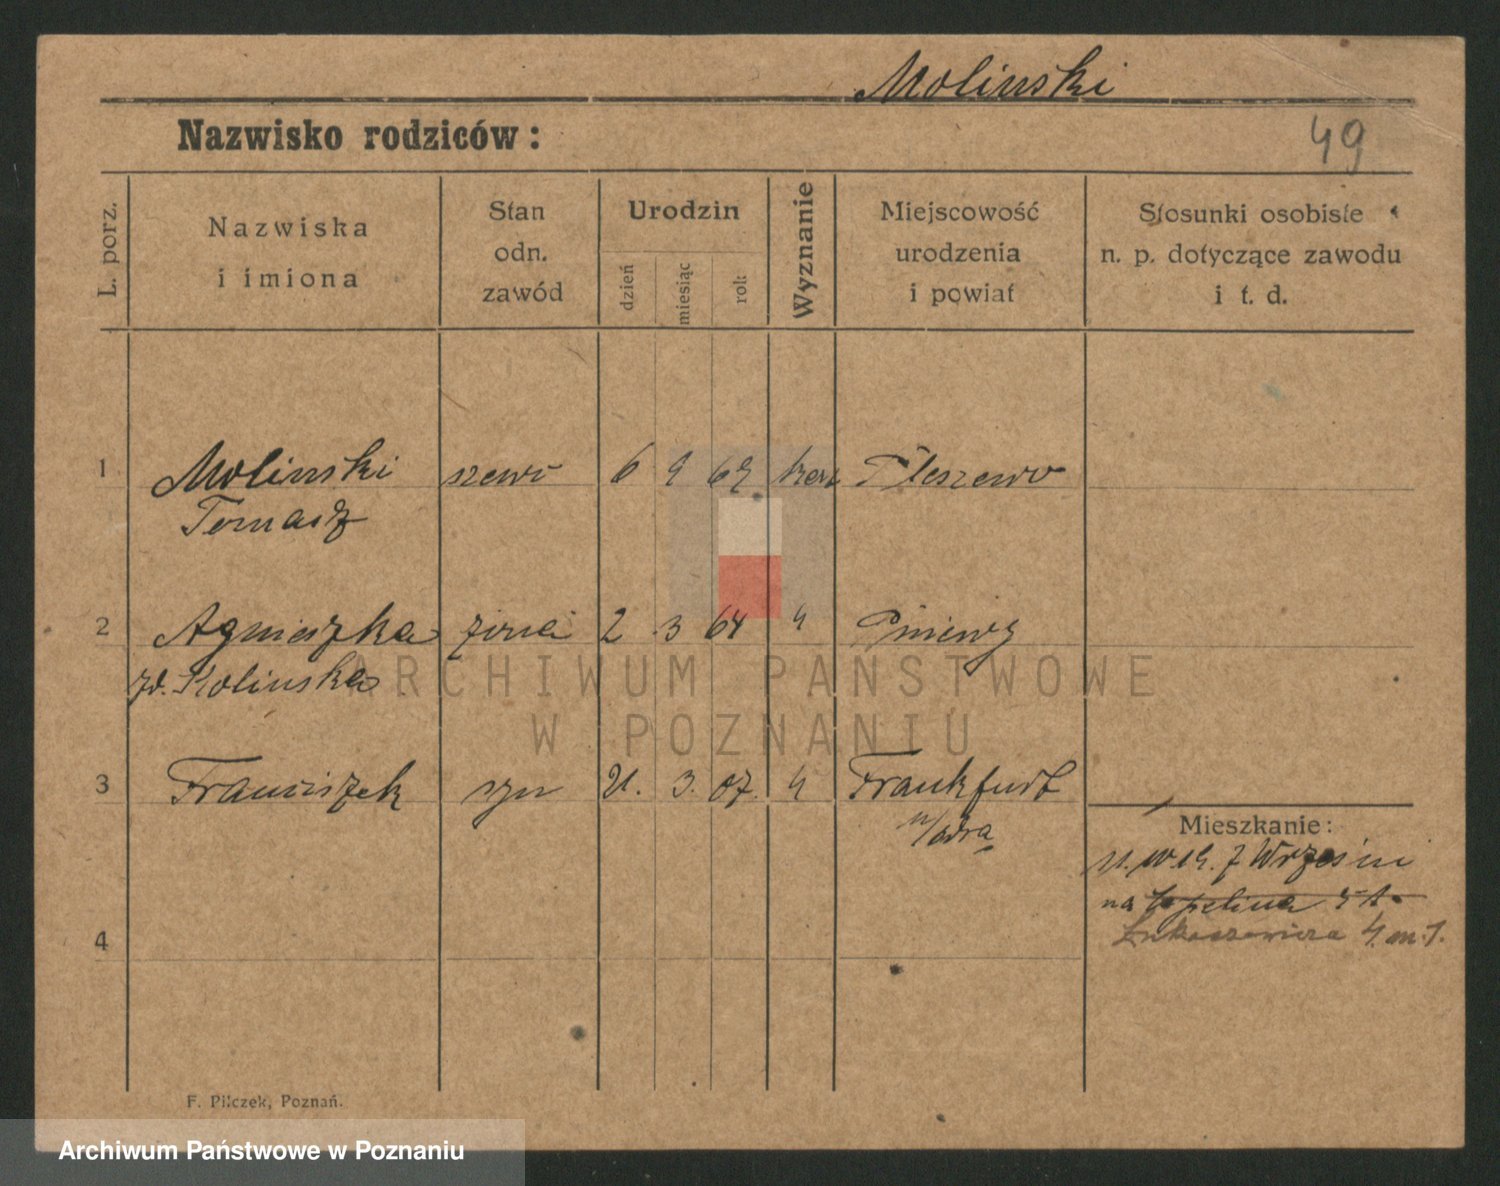 Molinski
Nazwisko rodziców:
49
L. porz.
Nazwiska
i imiona
Stan
odn.
zawód
Urodzin
dzień
miesiąc
rok
Wyznanie
Miejscowość
urodzenia
i powiat
Stosunki osobiste
n. p. dotyczące zawodu
i t. d.
1 Molinski szewc 6 9 Pleszewo
Tomasz
2 Agnieszka żona 2 3 64 Pniewy
zd. Kolinska
3 Franciszek syn 21. 3. 07. Frankfurt
n/odra
Mieszkanie:
z Wrześni
na
Łukaszewicza 4. m. 1.
4
F. Pilczek, Poznań.
ARCHIWUM PAŃSTWOWE
W POZNANIU
Archiwum Państwowe w Poznaniu